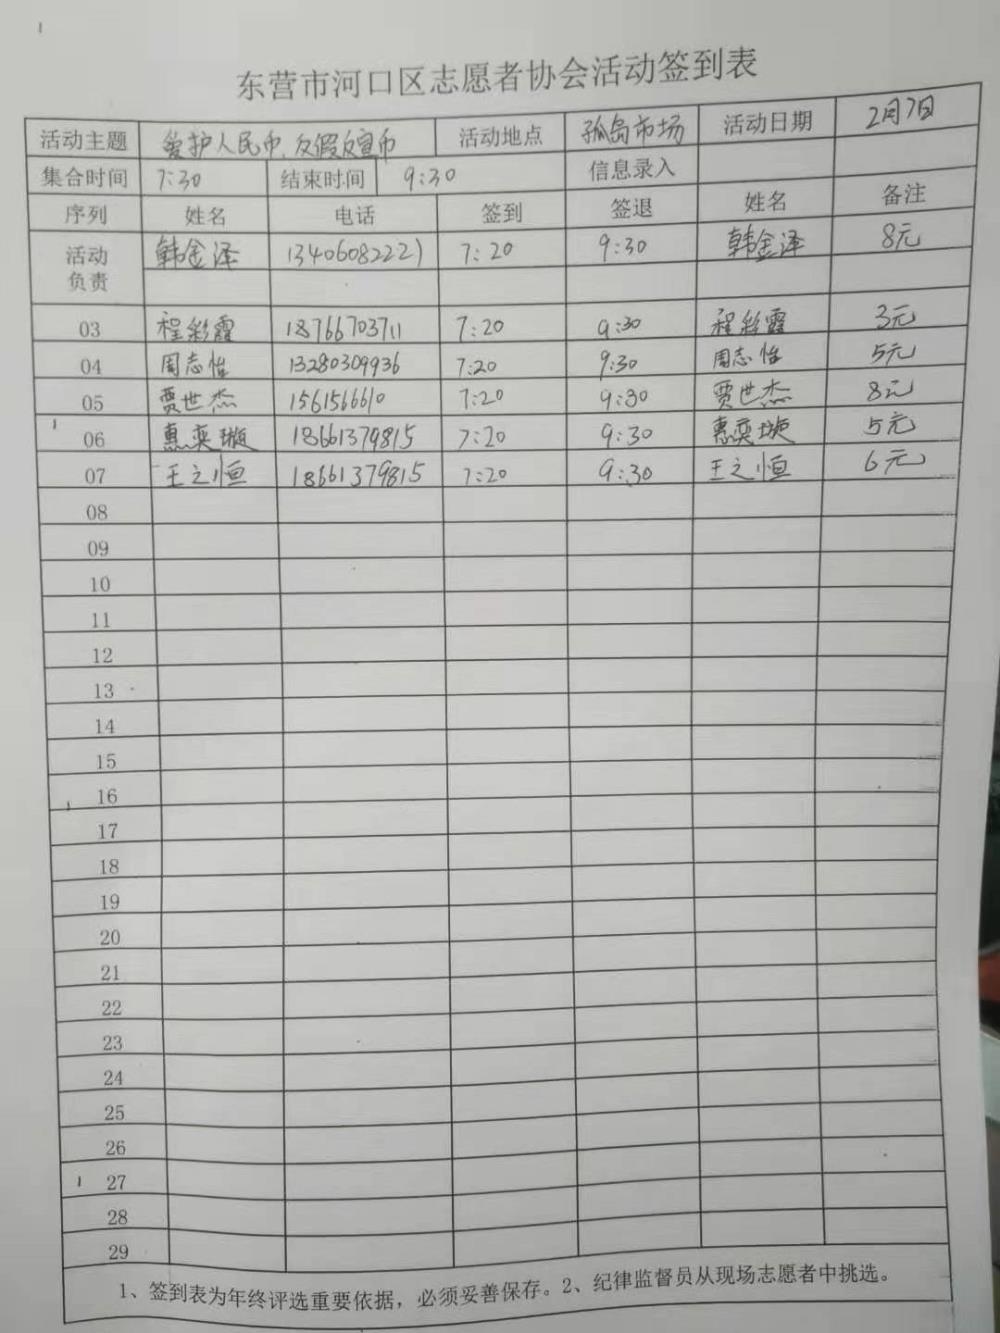 东营市河口区志愿者协会活动签到表
活动主题 爱护人民币、反假反宣币 活动地点 孤岛市场 活动日期 2月7日
集合时间 7:30 结束时间 9:30 信息录入
序列 姓名 电话 签到 签退 姓名 备注
活动负责 韩金泽 13406082221 7:20 9:30 韩金泽 8元
03 程彩霞 18766703711 7:20 9:30 程彩霞 3元
04 周志怡 13280309936 7:20 9:30 周志怡 5元
05 贾世杰 1561566610 7:20 9:30 贾世杰 8元
06 惠奕璇 18661379815 7:20 9:30 惠奕璇 5元
07 王之恒 18661379815 7:20 9:30 王之恒 6元
08
09
10
11
12
13
14
15
16
17
18
19
20
21
22
23
24
25
26
27
28
29
1、签到表为年终评选重要依据，必须妥善保存。2、纪律监督员从现场志愿者中挑选。